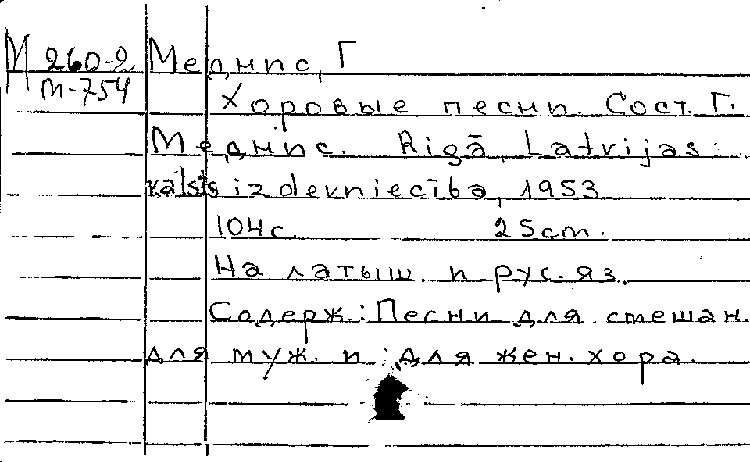 М 260-2
М-754
Меднис, Г
Хоровые песни. Сост. Г.
Меднис. Rigā, Latvijas
valsts izdevniecība, 1953
104с. 25см.
На латыш. и рус. яз.
Содерж.: Песни для смешан.
для муж. и для жен. хора.